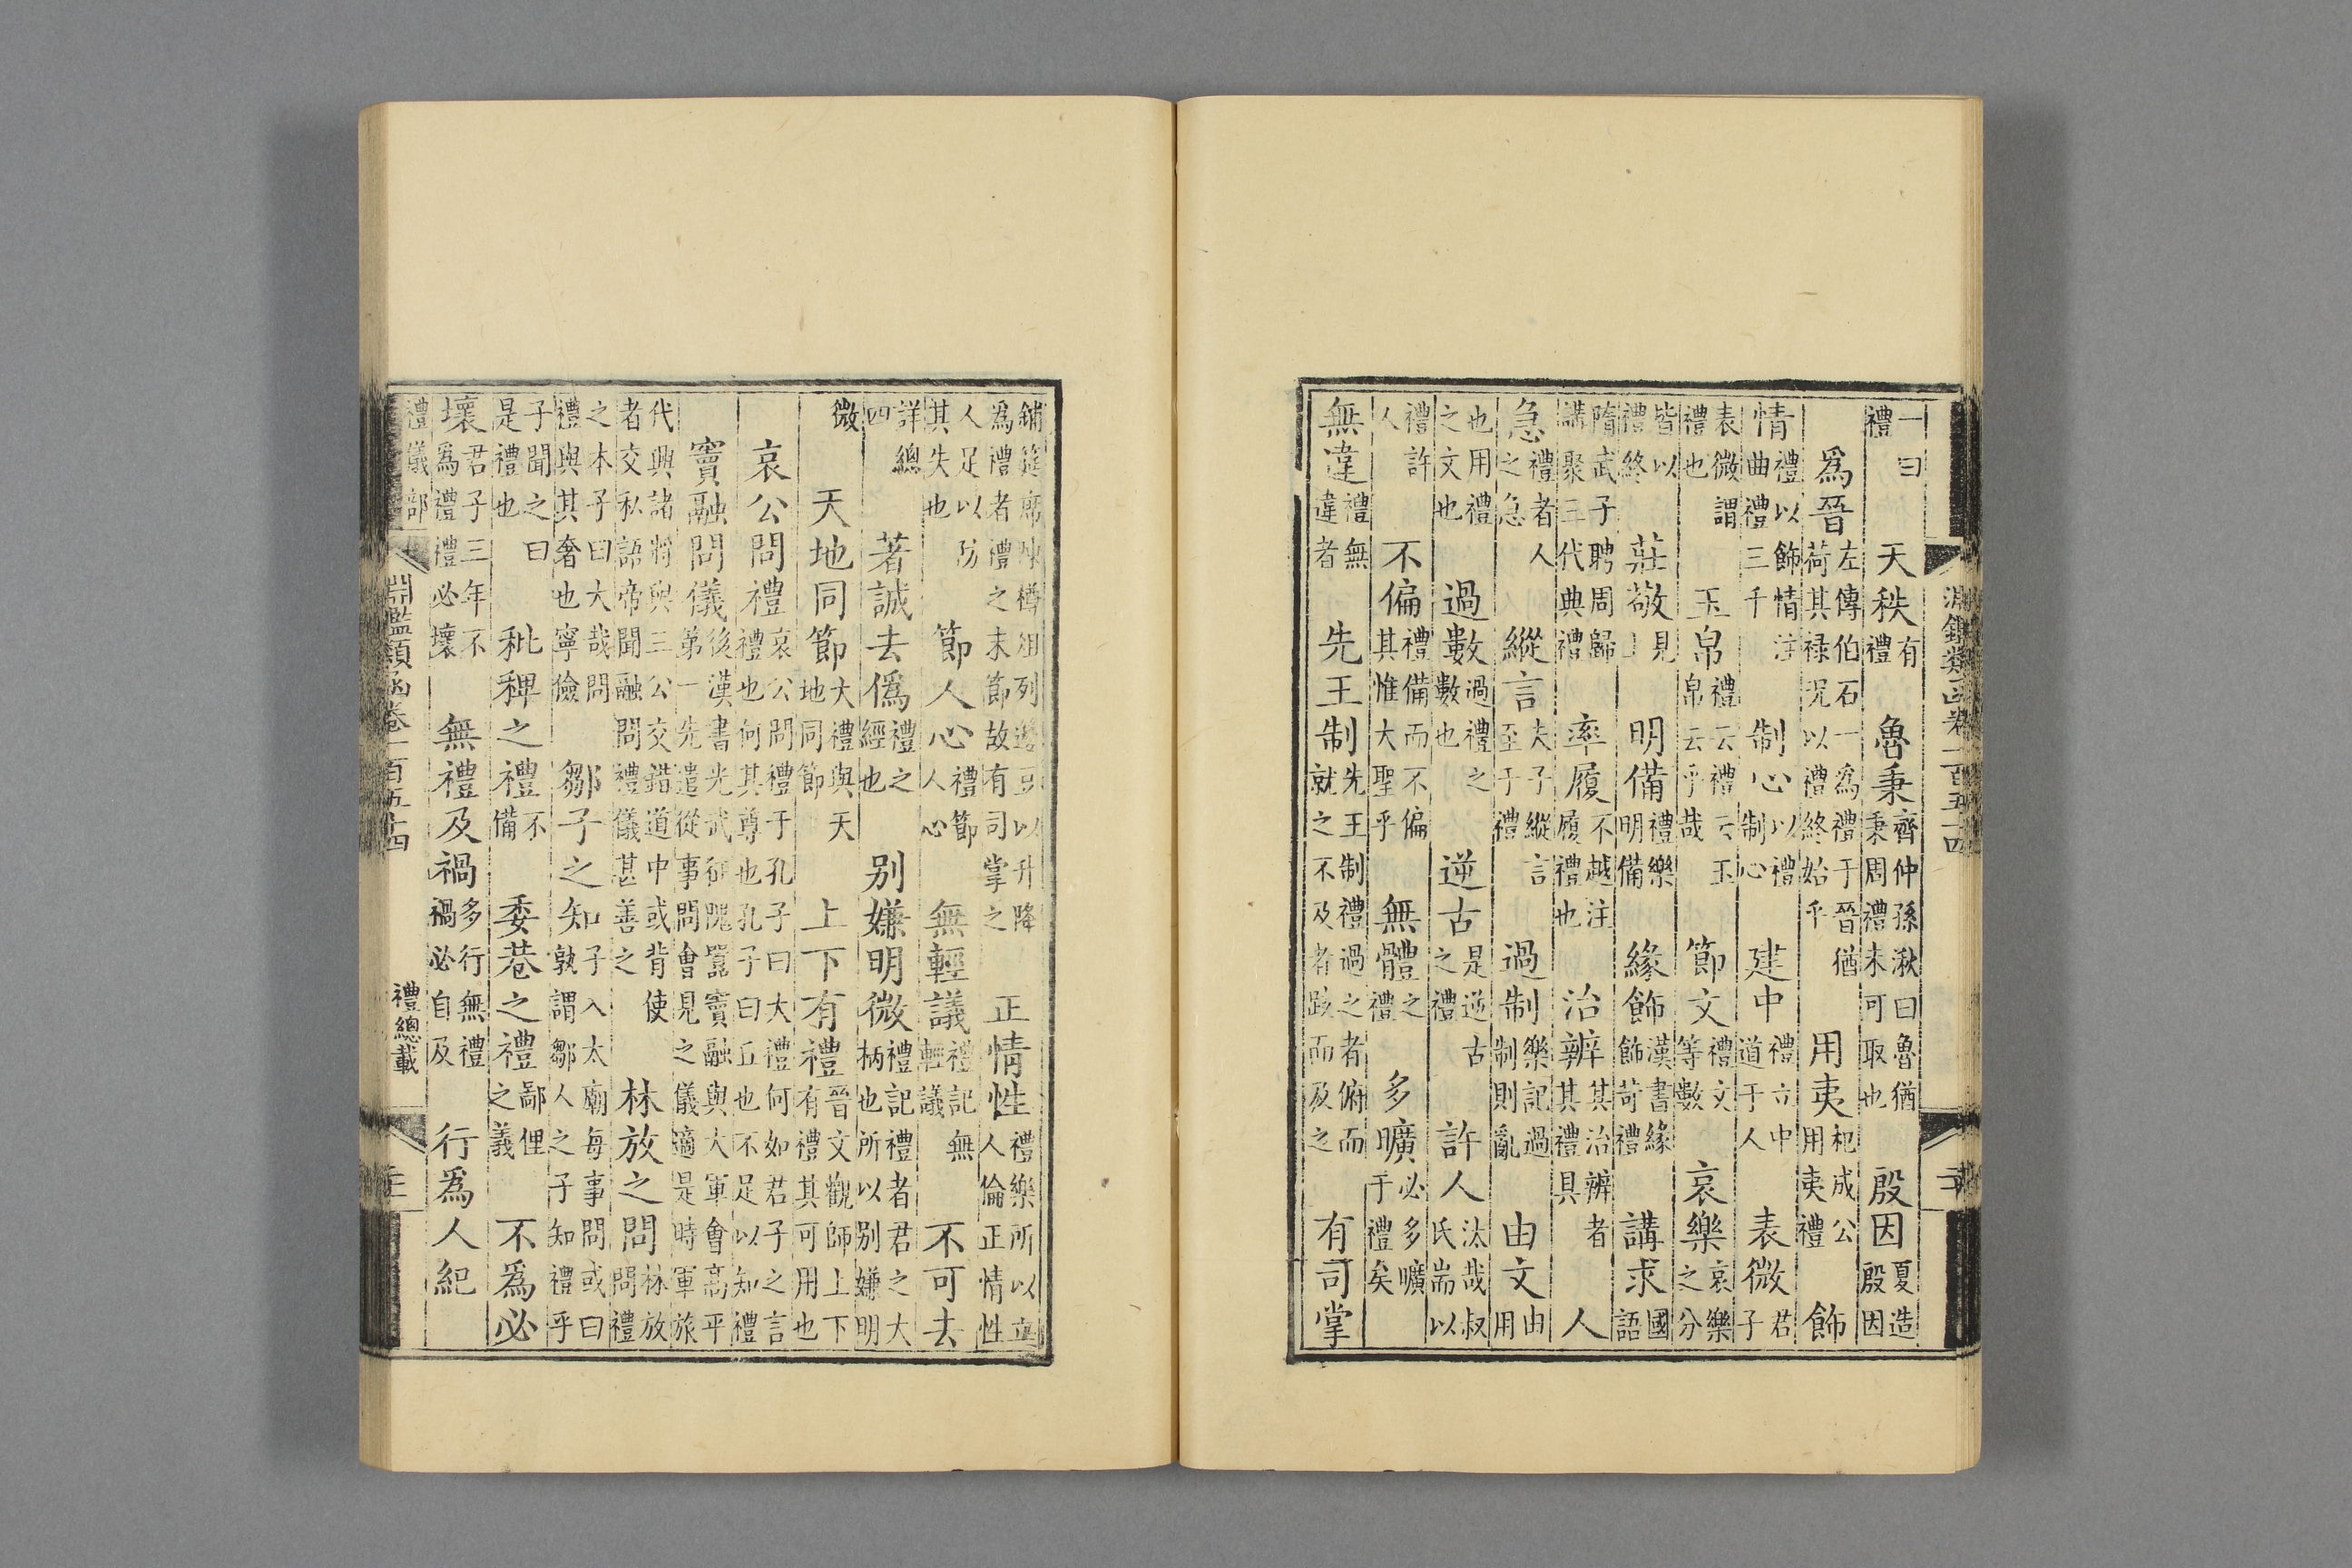 淵鑑類函卷一百五十四
一曰禮 天秩有禮 魯秉齊仲孫湫曰魯猶秉周禮未可取也 殷因夏造殷因
爲晉左傳伯石一爲禮于晉猶荷其祿況以禮終始乎 用夷杞成公用夷禮 飾
情禮以飾情注曲禮三千 制心以禮制心 建中禮立中道于人 表微君子
表微謂禮也 玉帛禮云禮云玉帛云乎哉 節文禮文等數 哀樂哀樂之分
皆以禮終 莊敬見上 明備禮樂明備 緣飾漢書緣飾苛禮 講求國語
隋武子聘周歸講聚三代典禮 率履不越注履禮也 治辨其治辨者其禮具 人
急禮者人之急 縱言夫子縱言至于禮 過制樂記過制則亂 由文由用
也用禮之文也 過數過禮之數也 逆古是逆古之禮 許人汰哉叔氏耑以
禮許人 不偏禮備而不偏其惟大聖乎 無體之禮 多曠必多曠于禮矣
無違禮無違者 先王制先王制禮過之者俯而就之不及者跂而及之 有司掌
鋪筵席陳樽俎列籩豆以升降爲禮者禮之末節故有司掌之 正情性禮樂所以立人倫正情性
人足以防其失也 節人心禮節人心 無輕議禮記無輕議 不可去
詳總四 著誠去僞禮之經也 别嫌明微禮記禮者君之大柄也所以别嫌明
微 天地同節大禮與天地同節 上下有禮晉文觀師上下有禮其可用也
哀公問禮哀公問禮于孔子曰大禮何如君子之言禮也何其尊也孔子曰丘也不足以知禮
竇融問儀後漢書光武征隗囂竇融與大軍會高平第一先遣從事問會見之儀適是時軍旅
代興諸將與三公交錯道中或背使者交私語帝聞融問禮儀甚善之 林放之問林放問禮
之本子曰大哉問禮與其奢也寧儉 鄒子之知子入太廟每事問或曰孰謂鄒人之子知禮乎
子聞之曰是禮也 秕稗之禮不備 委巷之禮鄙俚之義 不爲必
壞君子三年不爲禮禮必壞 無禮及禍多行無禮禍必自及 行爲人紀
禮儀部 淵鑑類函卷一百五十四 禮總載